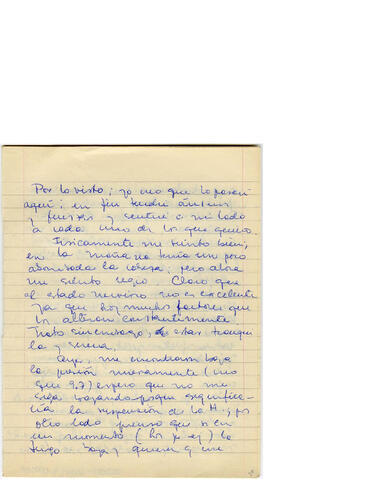 Por lo visto; yo creo que lo pasaré
aquí; en fin tendré ánimos
y pensar y sentir a mi lado
a cada uno de los que quiero.
Físicamente me siento bien;
en la mañana tenía un poco
abombada la cabeza; pero ahora
me siento regio. Claro que
el estado nervioso no es excelente
ya que hay muchos factores que
lo alteran constantemente
trato sin embargo, de estar tranqui
la y serena.
Ayer, me encontraron baja
la presión nuevamente (
que 9,7) espero que no me
siga bajando porque significa
ría la suspensión de la H. y por
otro lado pienso que si en
un momento (hoy p. ej) la
tengo baja y quieren q' me